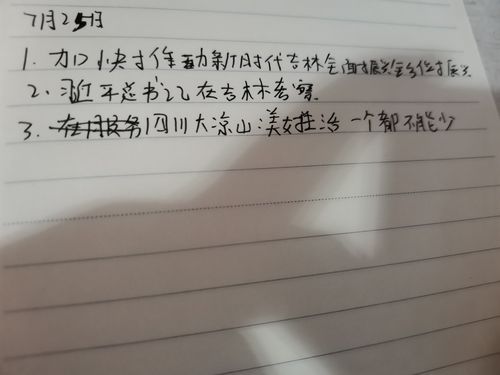 7月25月
1. 加快推动新时代吉林全面振兴全方位振兴
2. 习近平总书记在吉林考察
3. 四川大凉山:美女 治 一个都不能少